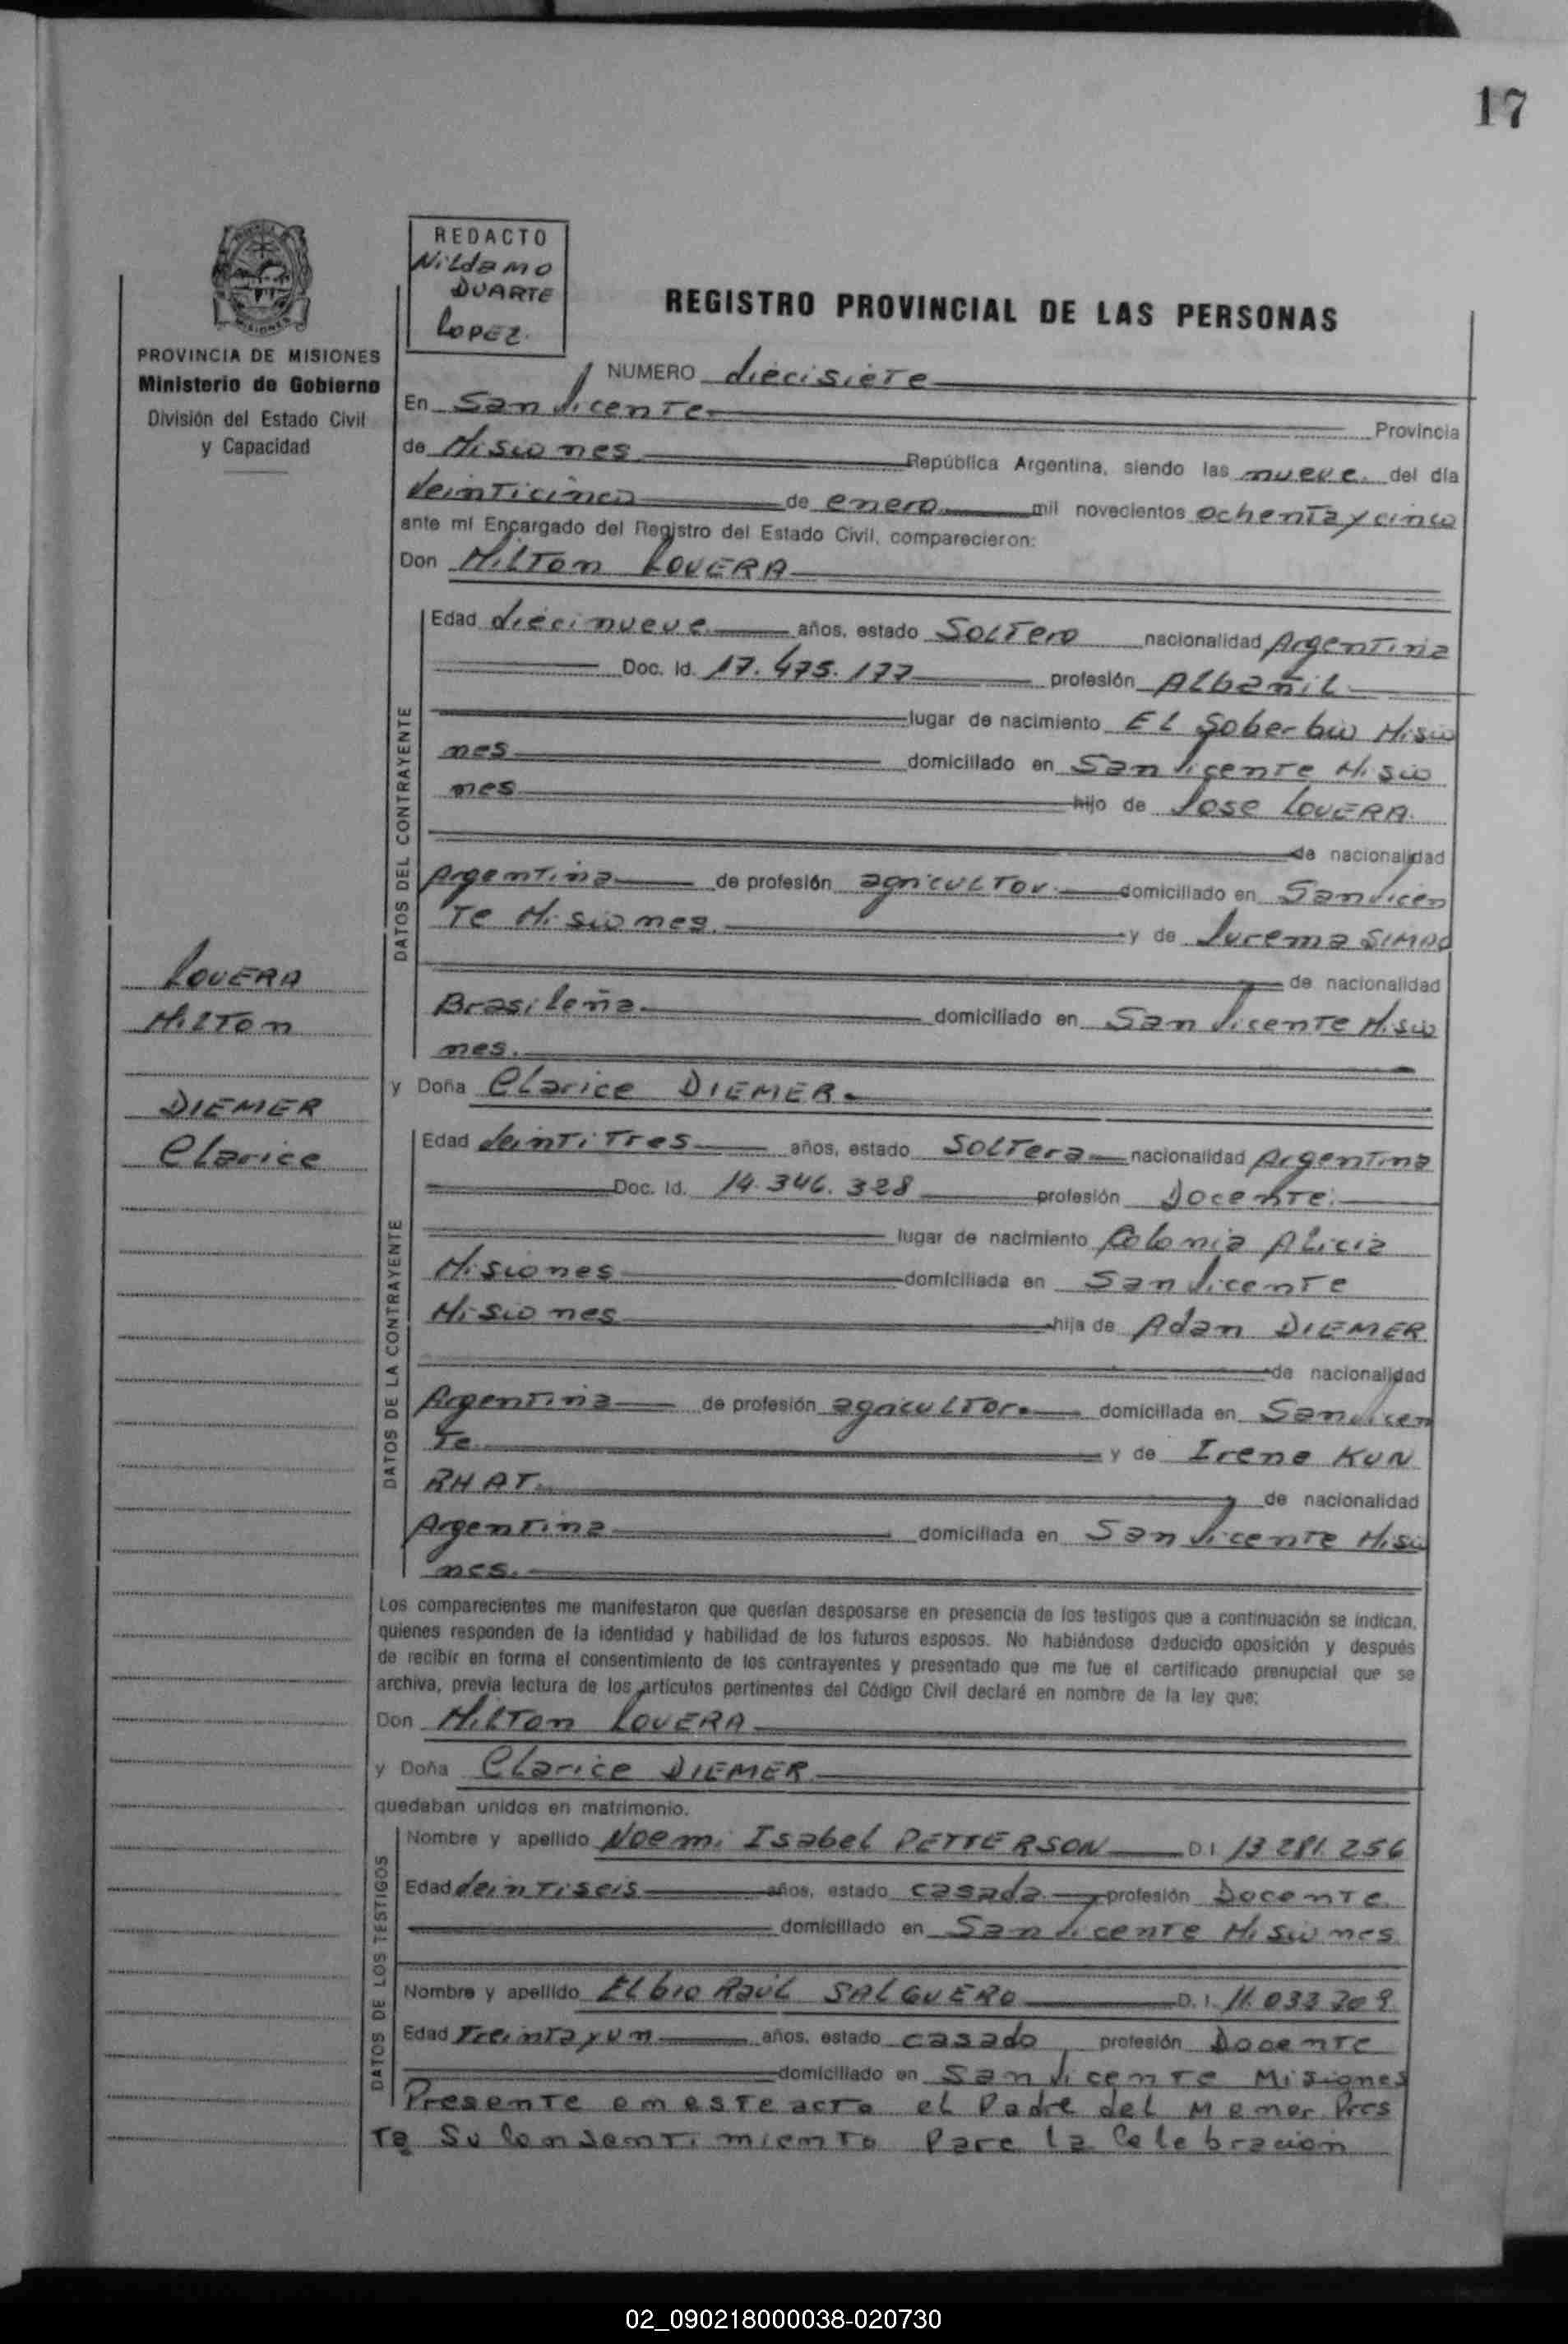 17
REDACTO
Nildamo
DUARTE
LOPEZ.
REGISTRO PROVINCIAL DE LAS PERSONAS
PROVINCIA DE MISIONES
Ministerio de Gobierno
División del Estado Civil
y Capacidad
NUMERO diecisiete
En San Vicente Provincia
de Misiones República Argentina, siendo las nueve del día
Veinticinco de enero mil novecientos ochenta y cinco
ante mí Encargado del Registro del Estado Civil, comparecieron:
Don Milton LOVERA
DATOS DEL CONTRAYENTE
Edad diecinueve años, estado Soltero nacionalidad Argentina
Doc. Id. 17.475.177 profesión Albañil
lugar de nacimiento EL Soberbio Misio
nes domiciliado en San Vicente Misio
nes hijo de Jose LOVERA
de nacionalidad
Argentina de profesión agricultor domiciliado en San Vicen
te Misiones. y de Jurema SIMAO
de nacionalidad
Brasileña domiciliado en San Vicente Misio
nes.
LOVERA
Milton
DIEMER
Clarice
y Doña Clarice DIEMER
DATOS DE LA CONTRAYENTE
Edad Veintitres años, estado Soltera nacionalidad Argentina
Doc. Id. 14.346.328 profesión Docente
lugar de nacimiento Colonia Alicia
Misiones domiciliada en San Vicente
Misiones hija de Adan DIEMER
de nacionalidad
Argentina de profesión agricultor domiciliada en San Vicen
te y de Irene KUN
RHAT de nacionalidad
Argentina domiciliada en San Vicente Misio
nes.
Los comparecientes me manifestaron que querían desposarse en presencia de los testigos que a continuación se indican,
quienes responden de la identidad y habilidad de los futuros esposos. No habiéndose deducido oposición y después
de recibir en forma el consentimiento de los contrayentes y presentado que me fue el certificado prenupcial que se
archiva, previa lectura de los artículos pertinentes del Código Civil declaré en nombre de la ley que:
Don Milton LOVERA
y Doña Clarice DIEMER
quedaban unidos en matrimonio.
DATOS DE LOS TESTIGOS
Nombre y apellido Noemi Isabel PETTERSON D.I. 13 281.256
Edad Veintiseis años, estado casada profesión Docente
domiciliado en San Vicente Misiones
Nombre y apellido Elbio Raúl SALGUERO D.I. 11.033 709
Edad Treinta y un años, estado casado profesión Docente
domiciliado en San Vicente Misiones
Presente en este acto el Padre del Menor Pres
ta Su Consentimiento Para la Celebración
02_090218000038-020730